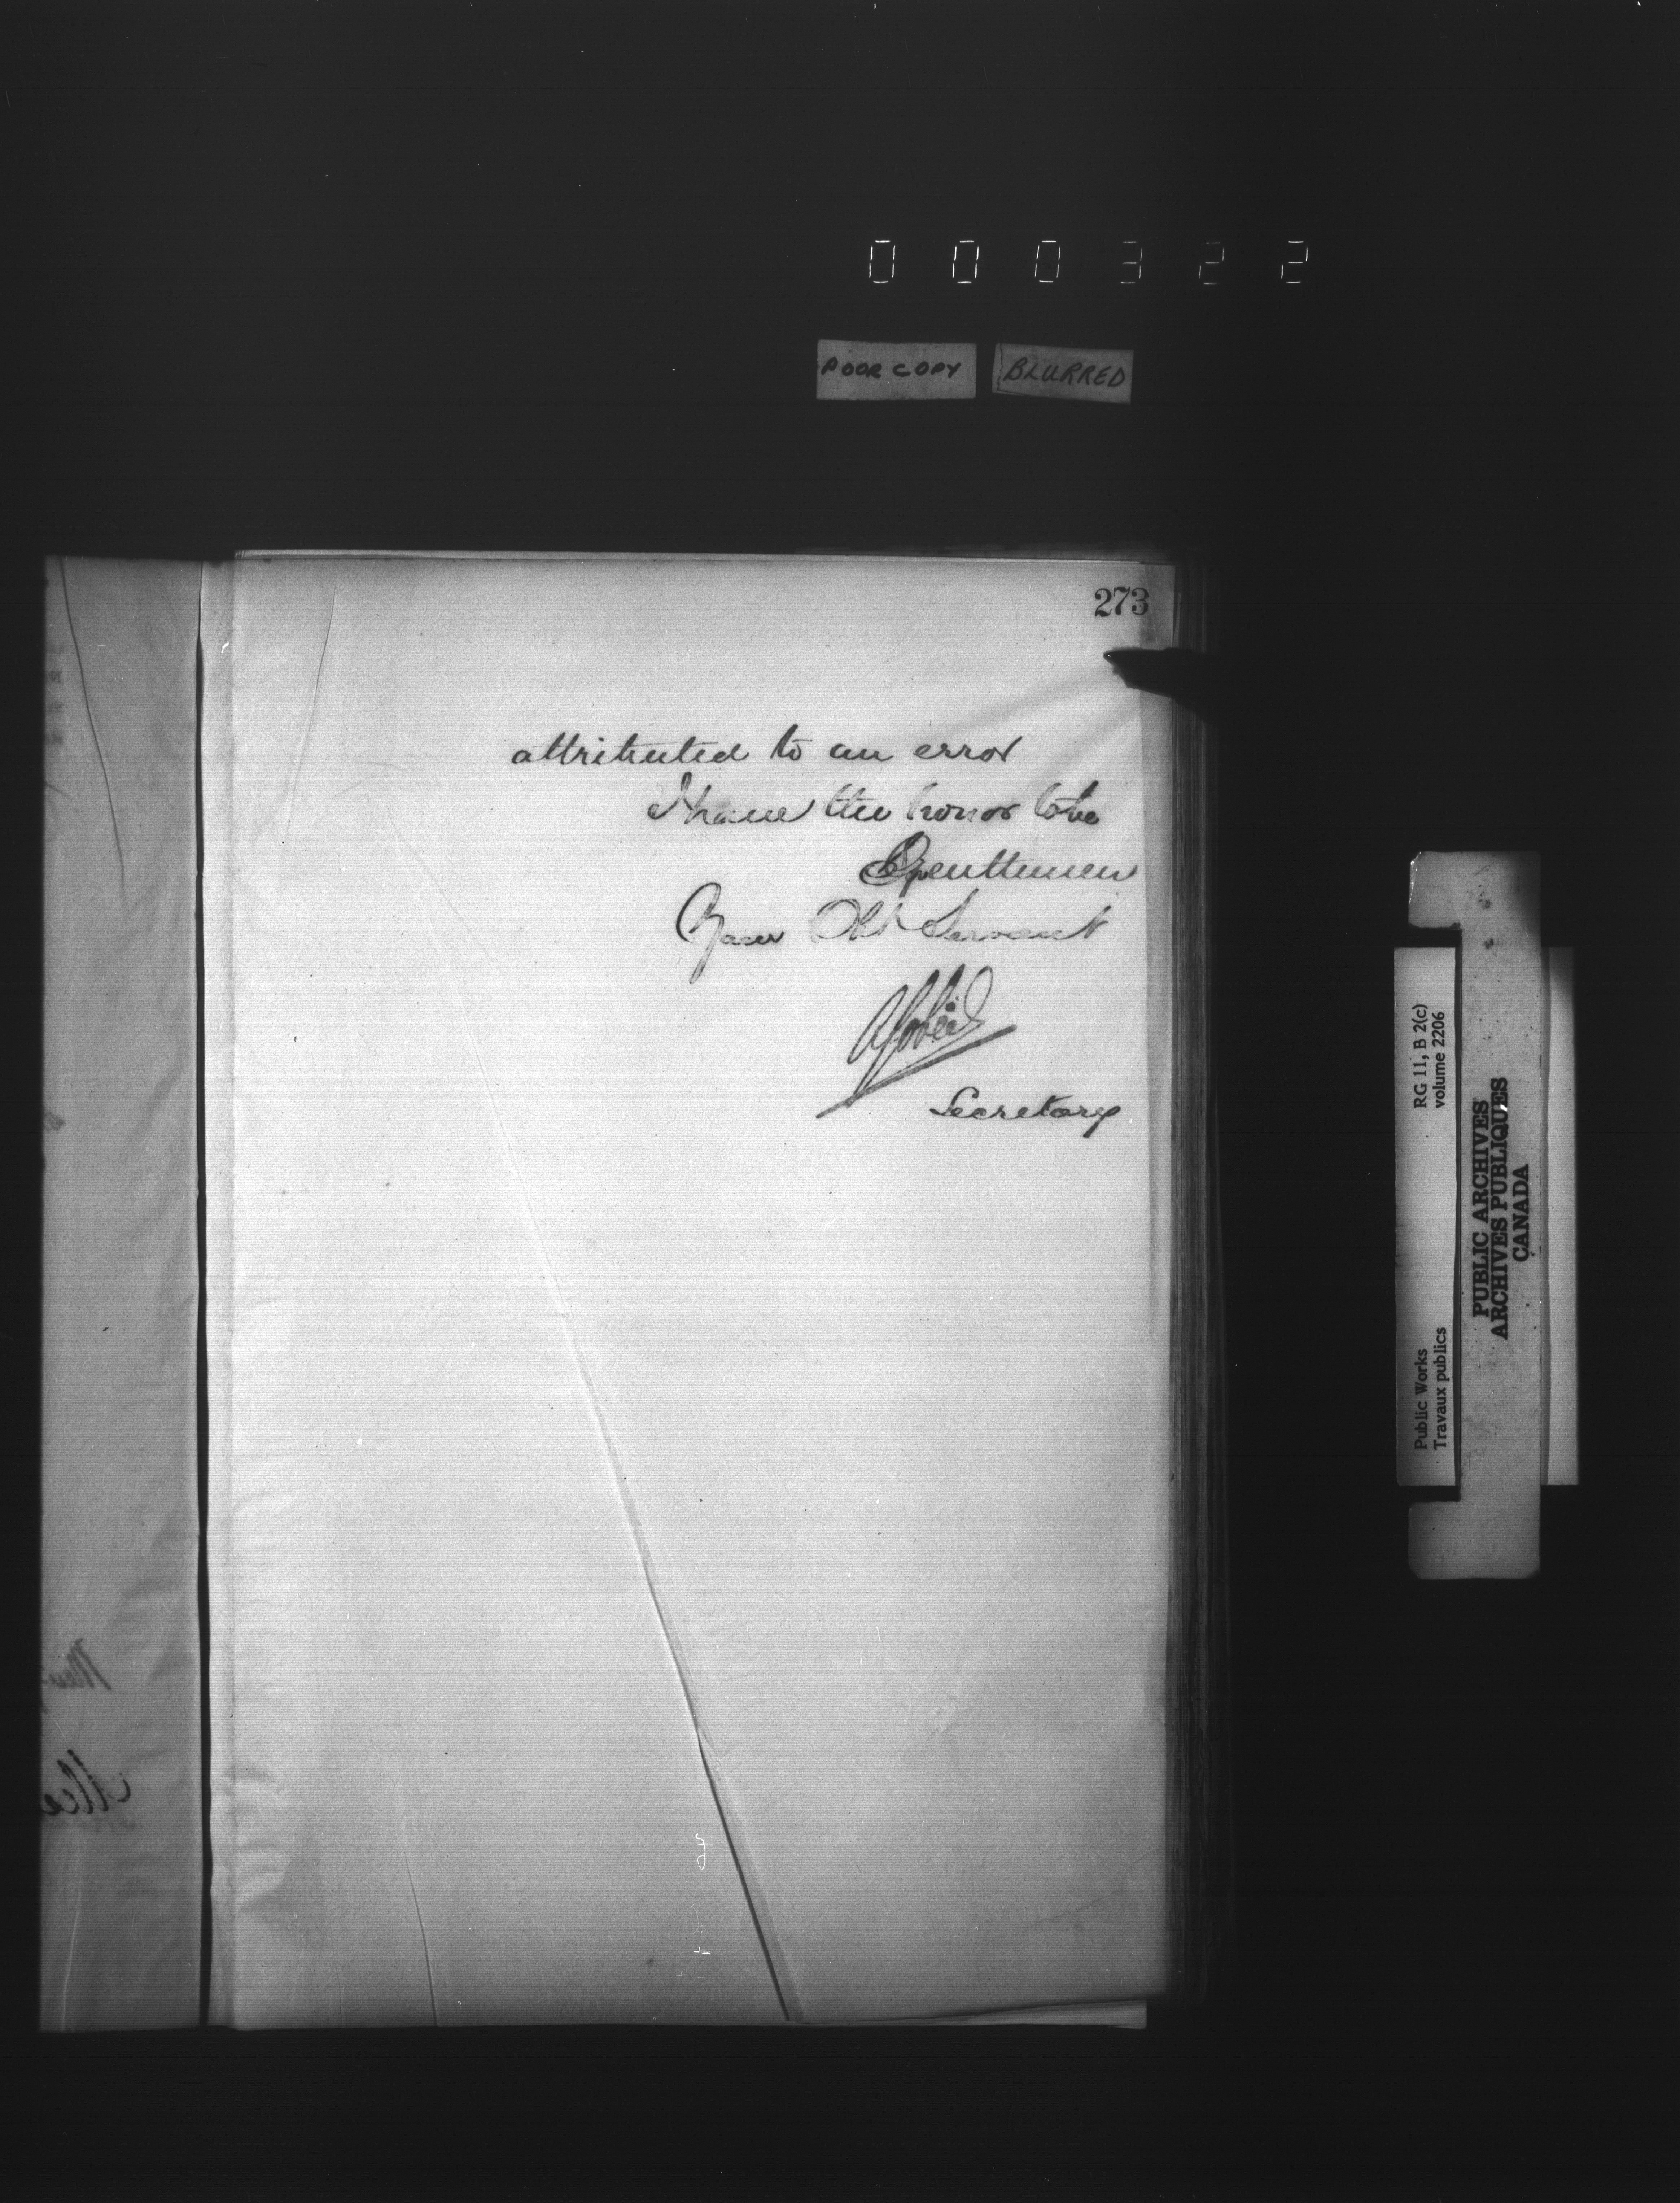 000322
POOR COPY BLURRED
273
attributed to an error
I have the honor to be
Gentlemen
Your Obt Servant
Secretary
RG 11, B 2(c)
volume 2206
Public Works
Travaux publics
PUBLIC ARCHIVES
ARCHIVES PUBLIQUES
CANADA